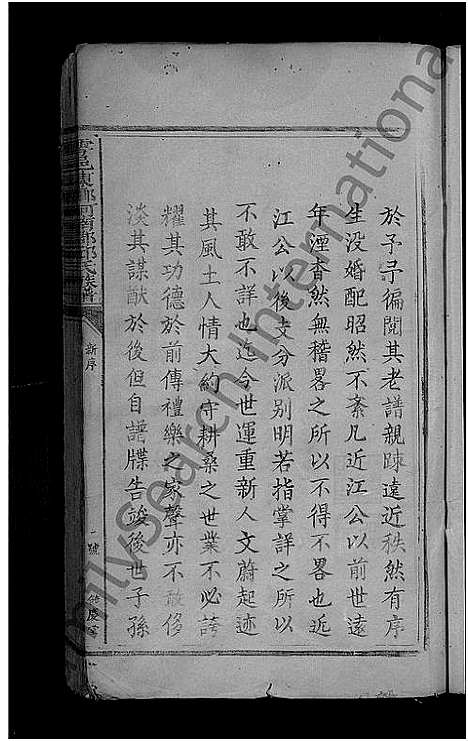 於予予偏閱其老譜親踈遠近秩然有序
生没婚配昭然不紊凡近江公以前世遠
年湮杳然無稽畧之所以不得不畧也近
江公以後支分派别明若指掌詳之所以
不敢不詳也迄今世運重新人文蔚起迹
其風土人情大約守耕桑之世業不必誇
耀其功德於前傳禮樂之家聲亦不敢侈
淡其謀猷於後但自譜牒告竣後世子孫
東鄉河南鄉邱氏族譜
新序
一號
milySearch International